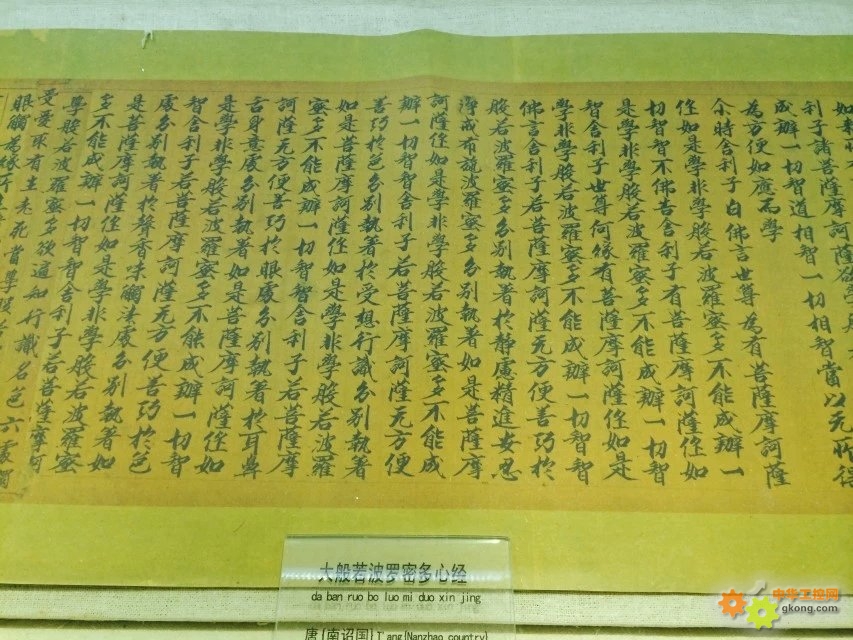 利子諸菩薩摩訶薩欲學
成辦一切智道相智一切相智當以无所得
為方便如應而學
尒時舍利子白佛言世尊為有菩薩摩訶薩
住如是學非學般若波羅蜜多不能成辦一
切智智不佛告舍利子有菩薩摩訶薩住如
是學非學般若波羅蜜多不能成辦一切智
智舍利子世尊何緣有菩薩摩訶薩住如是
學非學般若波羅蜜多不能成辦一切智智
佛言舍利子若菩薩摩訶薩无方便善巧於
般若波羅蜜多分別執著於靜慮精進安忍
淨戒布施波羅蜜多分別執著如是菩薩摩
訶薩住如是學非學般若波羅蜜多不能成
辦一切智智舍利子若菩薩摩訶薩无方便
善巧於色分別執著於受想行識分別執著
如是菩薩摩訶薩住如是學非學般若波羅
蜜多不能成辦一切智智舍利子若菩薩摩
訶薩无方便善巧於眼處分別執著於耳鼻
舌身意處分別執著如是菩薩摩訶薩住如
是學非學般若波羅蜜多不能成辦一切智
智舍利子若菩薩摩訶薩无方便善巧於色
處分別執著於聲香味觸法處分別執著如
是菩薩摩訶薩住如是學非學般若波羅蜜
多不能成辦一切智智舍利子若菩薩摩訶
學般若波羅蜜多欲通知行識名色六處觸
受愛取有生老死當學
眼觸為緣所
大般若波罗密多心经
da ban ruo bo luo mi duo xin jing
唐[南诏国]T'ang[Nanzhao country]
中华工控网
gkong.com